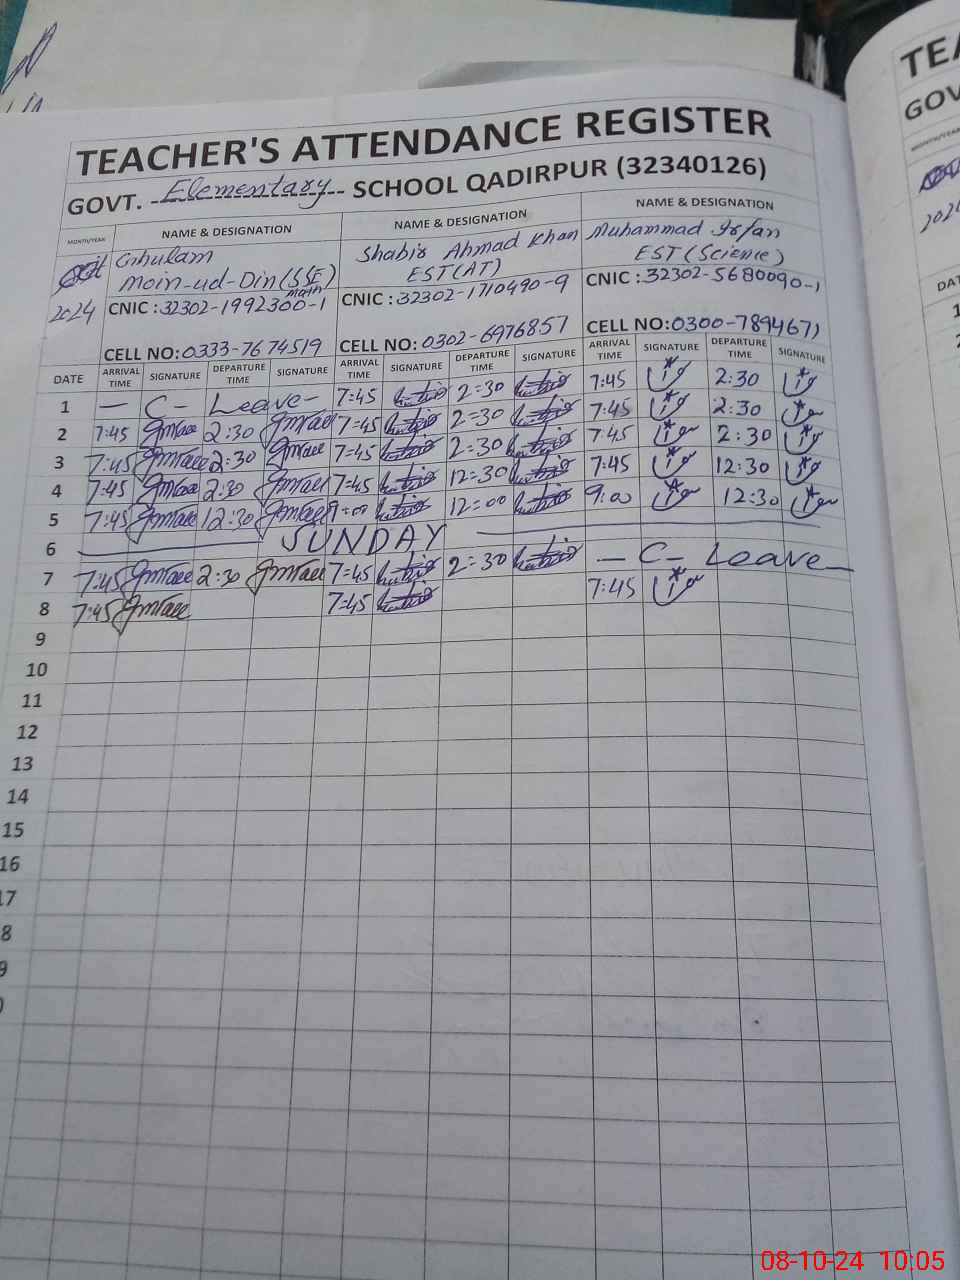 TEACHER'S ATTENDANCE REGISTER
GOVT. Elementary SCHOOL QADIRPUR (32340126)
MONTH/YEAR NAME & DESIGNATION NAME & DESIGNATION NAME & DESIGNATION
Oct Ghulam Shabir Ahmad Khan Muhammad Irfan
Moin-ud-Din (SSE) EST(AT) EST (Science)
math
2024 CNIC : 32302-1992300-1 CNIC : 32302-1710490-9 CNIC : 32302-5680090-1
CELL NO: 0333-7674519 CELL NO: 0302-6976857 CELL NO: 0300-7894671
DATE ARRIVAL TIME SIGNATURE DEPARTURE TIME SIGNATURE ARRIVAL TIME SIGNATURE DEPARTURE TIME SIGNATURE ARRIVAL TIME SIGNATURE DEPARTURE TIME SIGNATURE
1 — C - Leave - 7:45 2=30 7:45 2:30
2 7:45 2:30 7=45 2=30 7:45 2:30
3 7:45 2:30 7=45 2=30 7:45 2:30
4 7:45 2:30 7=45 12=30 7:45 12:30
5 7:45 12:30 9=00 12=00 9:00 12:30
6 SUNDAY
7 7:45 2:30 7=45 2=30 — C - Leave —
8 7:45 7=45 7:45
9
10
11
12
13
14
15
16
17
8
9
TEA
GOV
MONTH/YEAR
2024
DAT
1
2
08-10-24 10:05